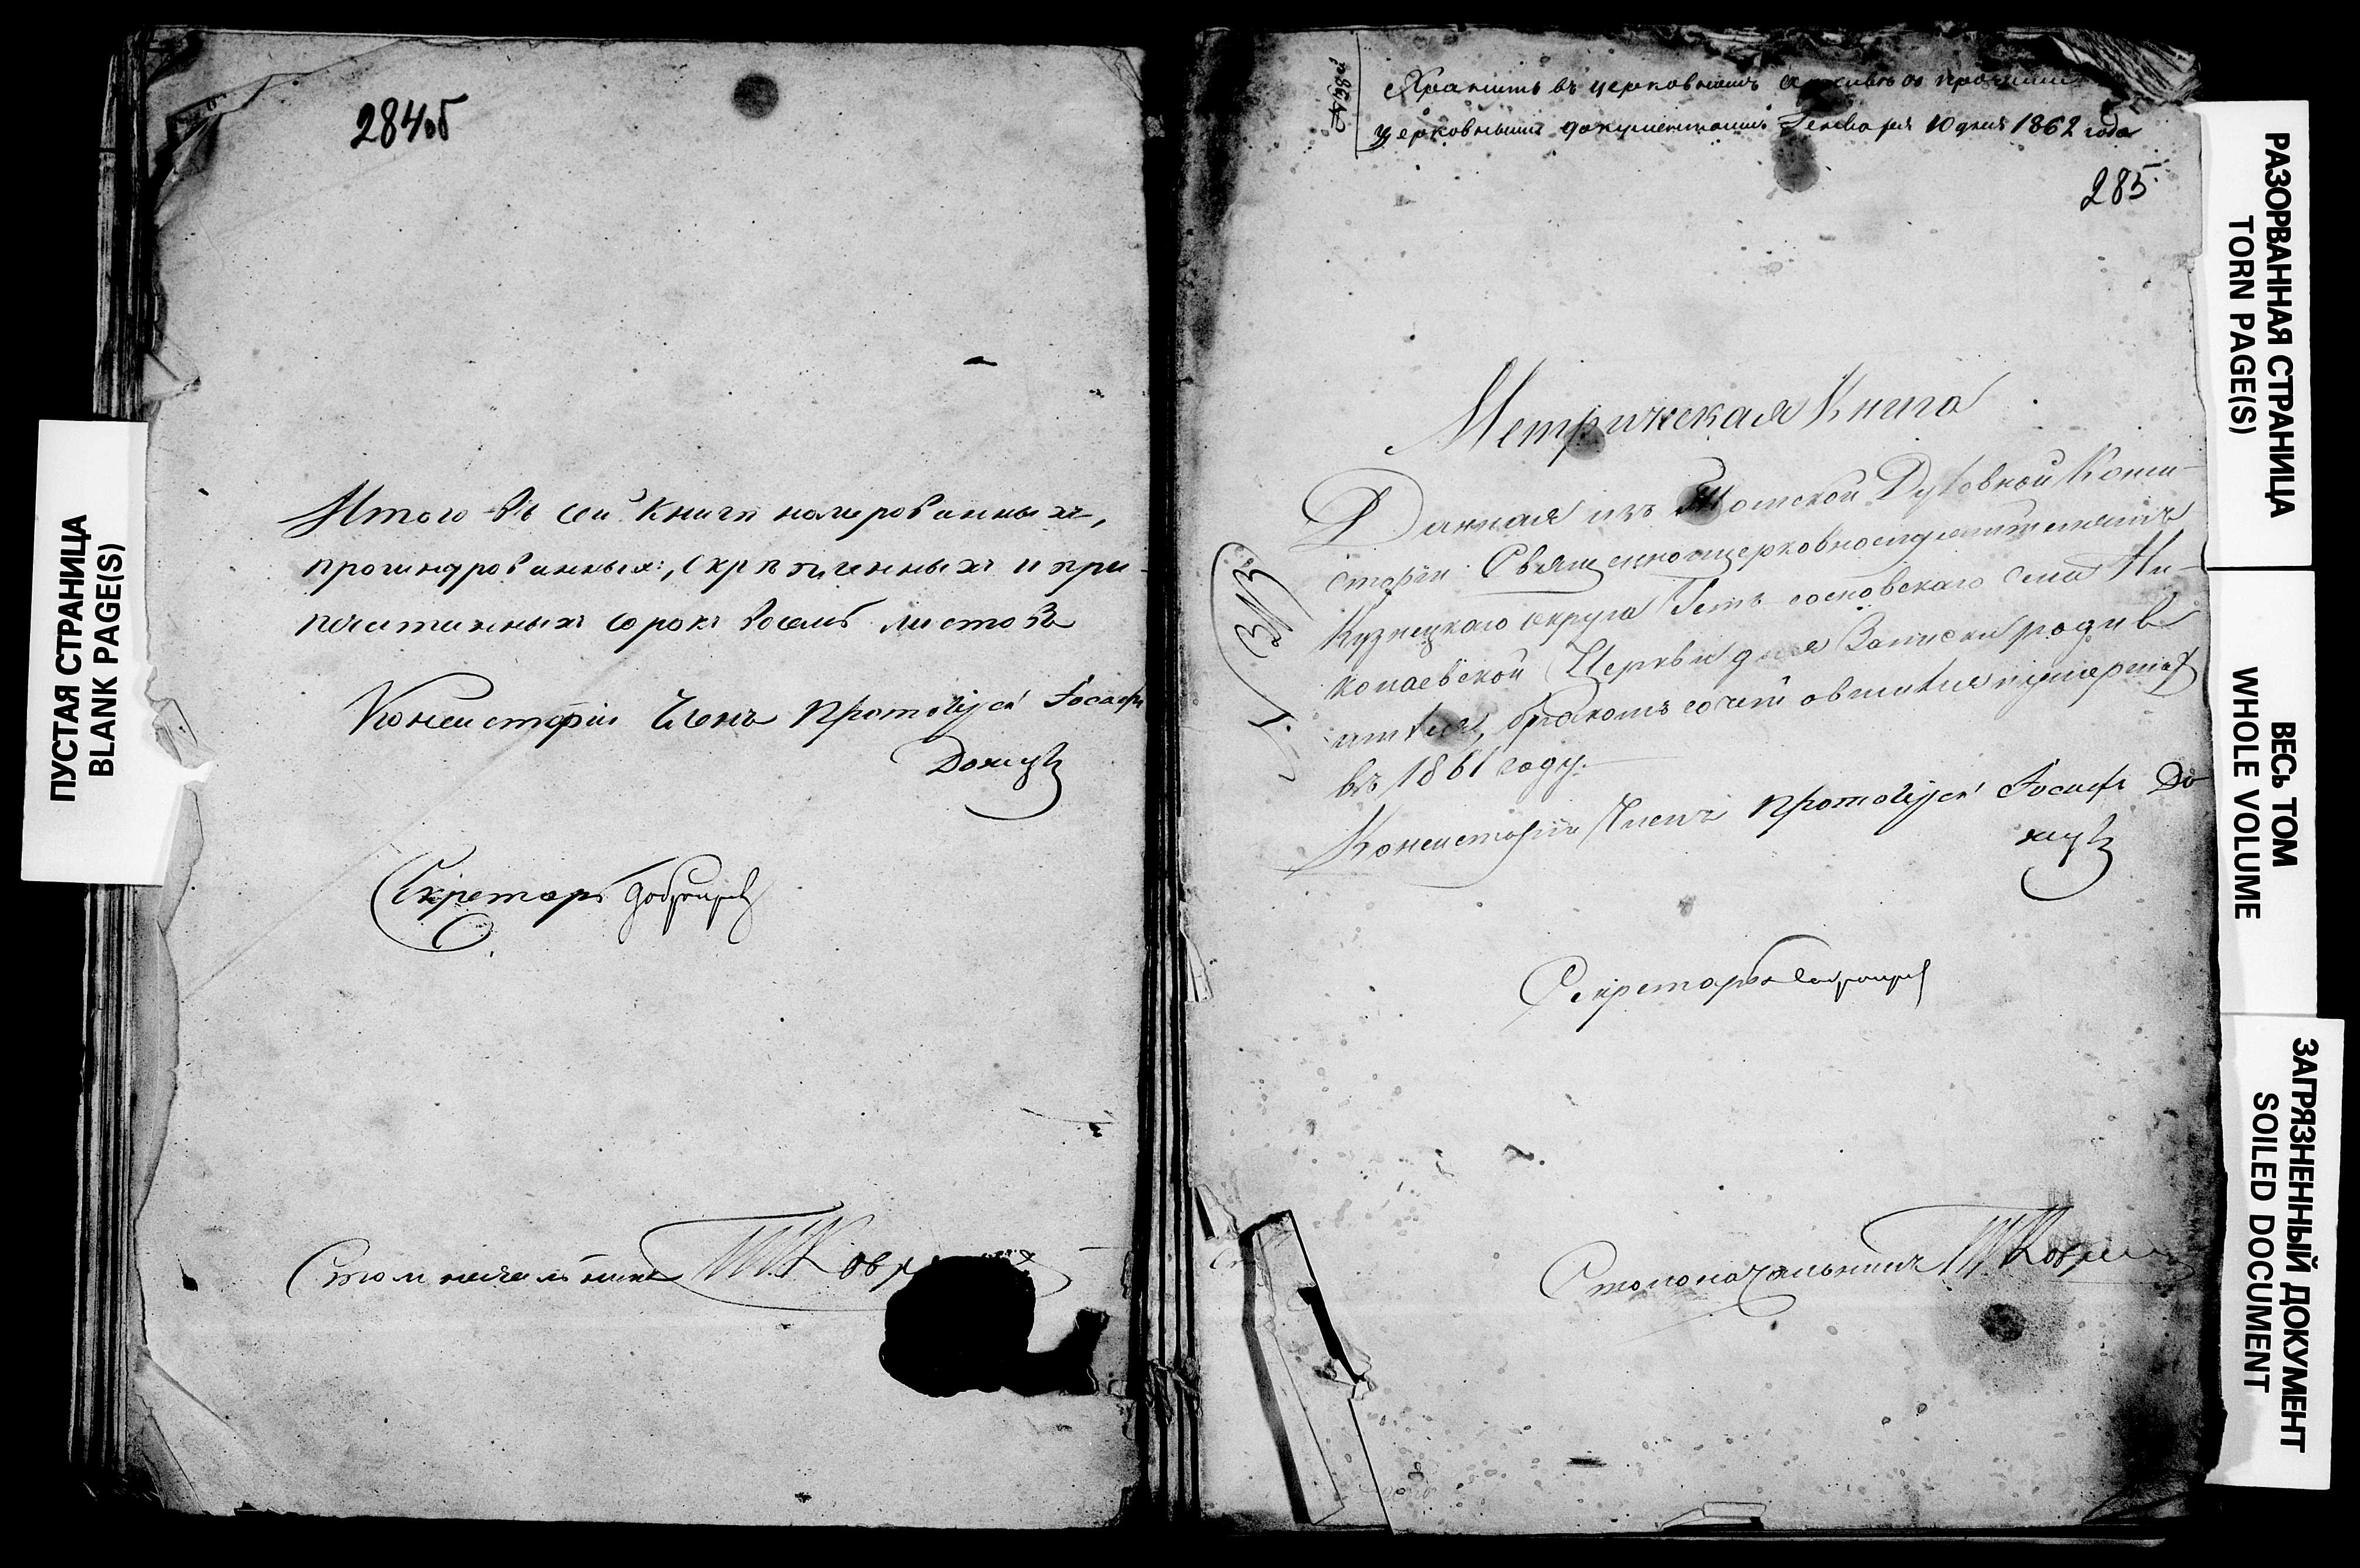 284об
Итого въ сей книгѣ номерованныхъ,
прошнурованныхъ, скрѣпленныхъ и при-
печатанныхъ сорокъ восемь листовъ
Консисторіи Членъ Протоіерей Іосифъ
Секретарь
Столоначальникъ
ПУСТАЯ СТРАНИЦА
BLANK PAGE(S)
Хранить въ церковномъ архивѣ съ прочими
церковными документами Генваря 10 дня 1862 года
285
Метрическая Книга
Данная изъ Томской Духовной Конси-
сторіи Священноцерковнослужителямъ
Кузнецкаго округа Усть сосновскаго села Ни-
колаевской Церкви для Записки родив
шихся, бракомъ сочетовшихся и умершихъ
въ 1861 году.
Консисторіи Членъ Протоіерей Іосифъ
Секретарь
Столоначальникъ
РАЗОРВАННАЯ СТРАНИЦА
TORN PAGE(S)
ВЕСЬ ТОМ
WHOLE VOLUME
ЗАГРЯЗНЕННЫЙ ДОКУМЕНТ
SOILED DOCUMENT